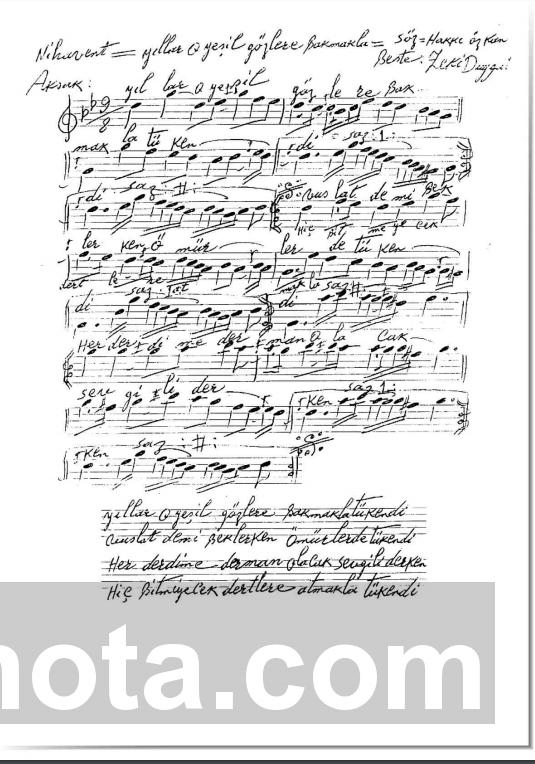 Nihavent = yıllar o yeşil gözlere Bakmakla = söz = Hakkı özkan
Beste: Zeki Duygulu
Aksak:
yıl lar o ye şil göz le re Bak
9
8
mak la tü ken di saz 1:
di saz: II: vus lat de mi Bek
Hiç Bit me ye cek
ler ken Ö mür ler de tü ken
dert le re
di saz: di saz II:
Her der di me der man O la Cak
sev gi li der ken saz 1:
ken saz: II:
yıllar o yeşil gözlere Bakmaklatükendi
vuslat demi Beklerken Ömürlerdetükendi
Her derdime derman olacak sevgiliderken
Hiç Bitmiyecek dertlere atmakla tükendi
nota.com